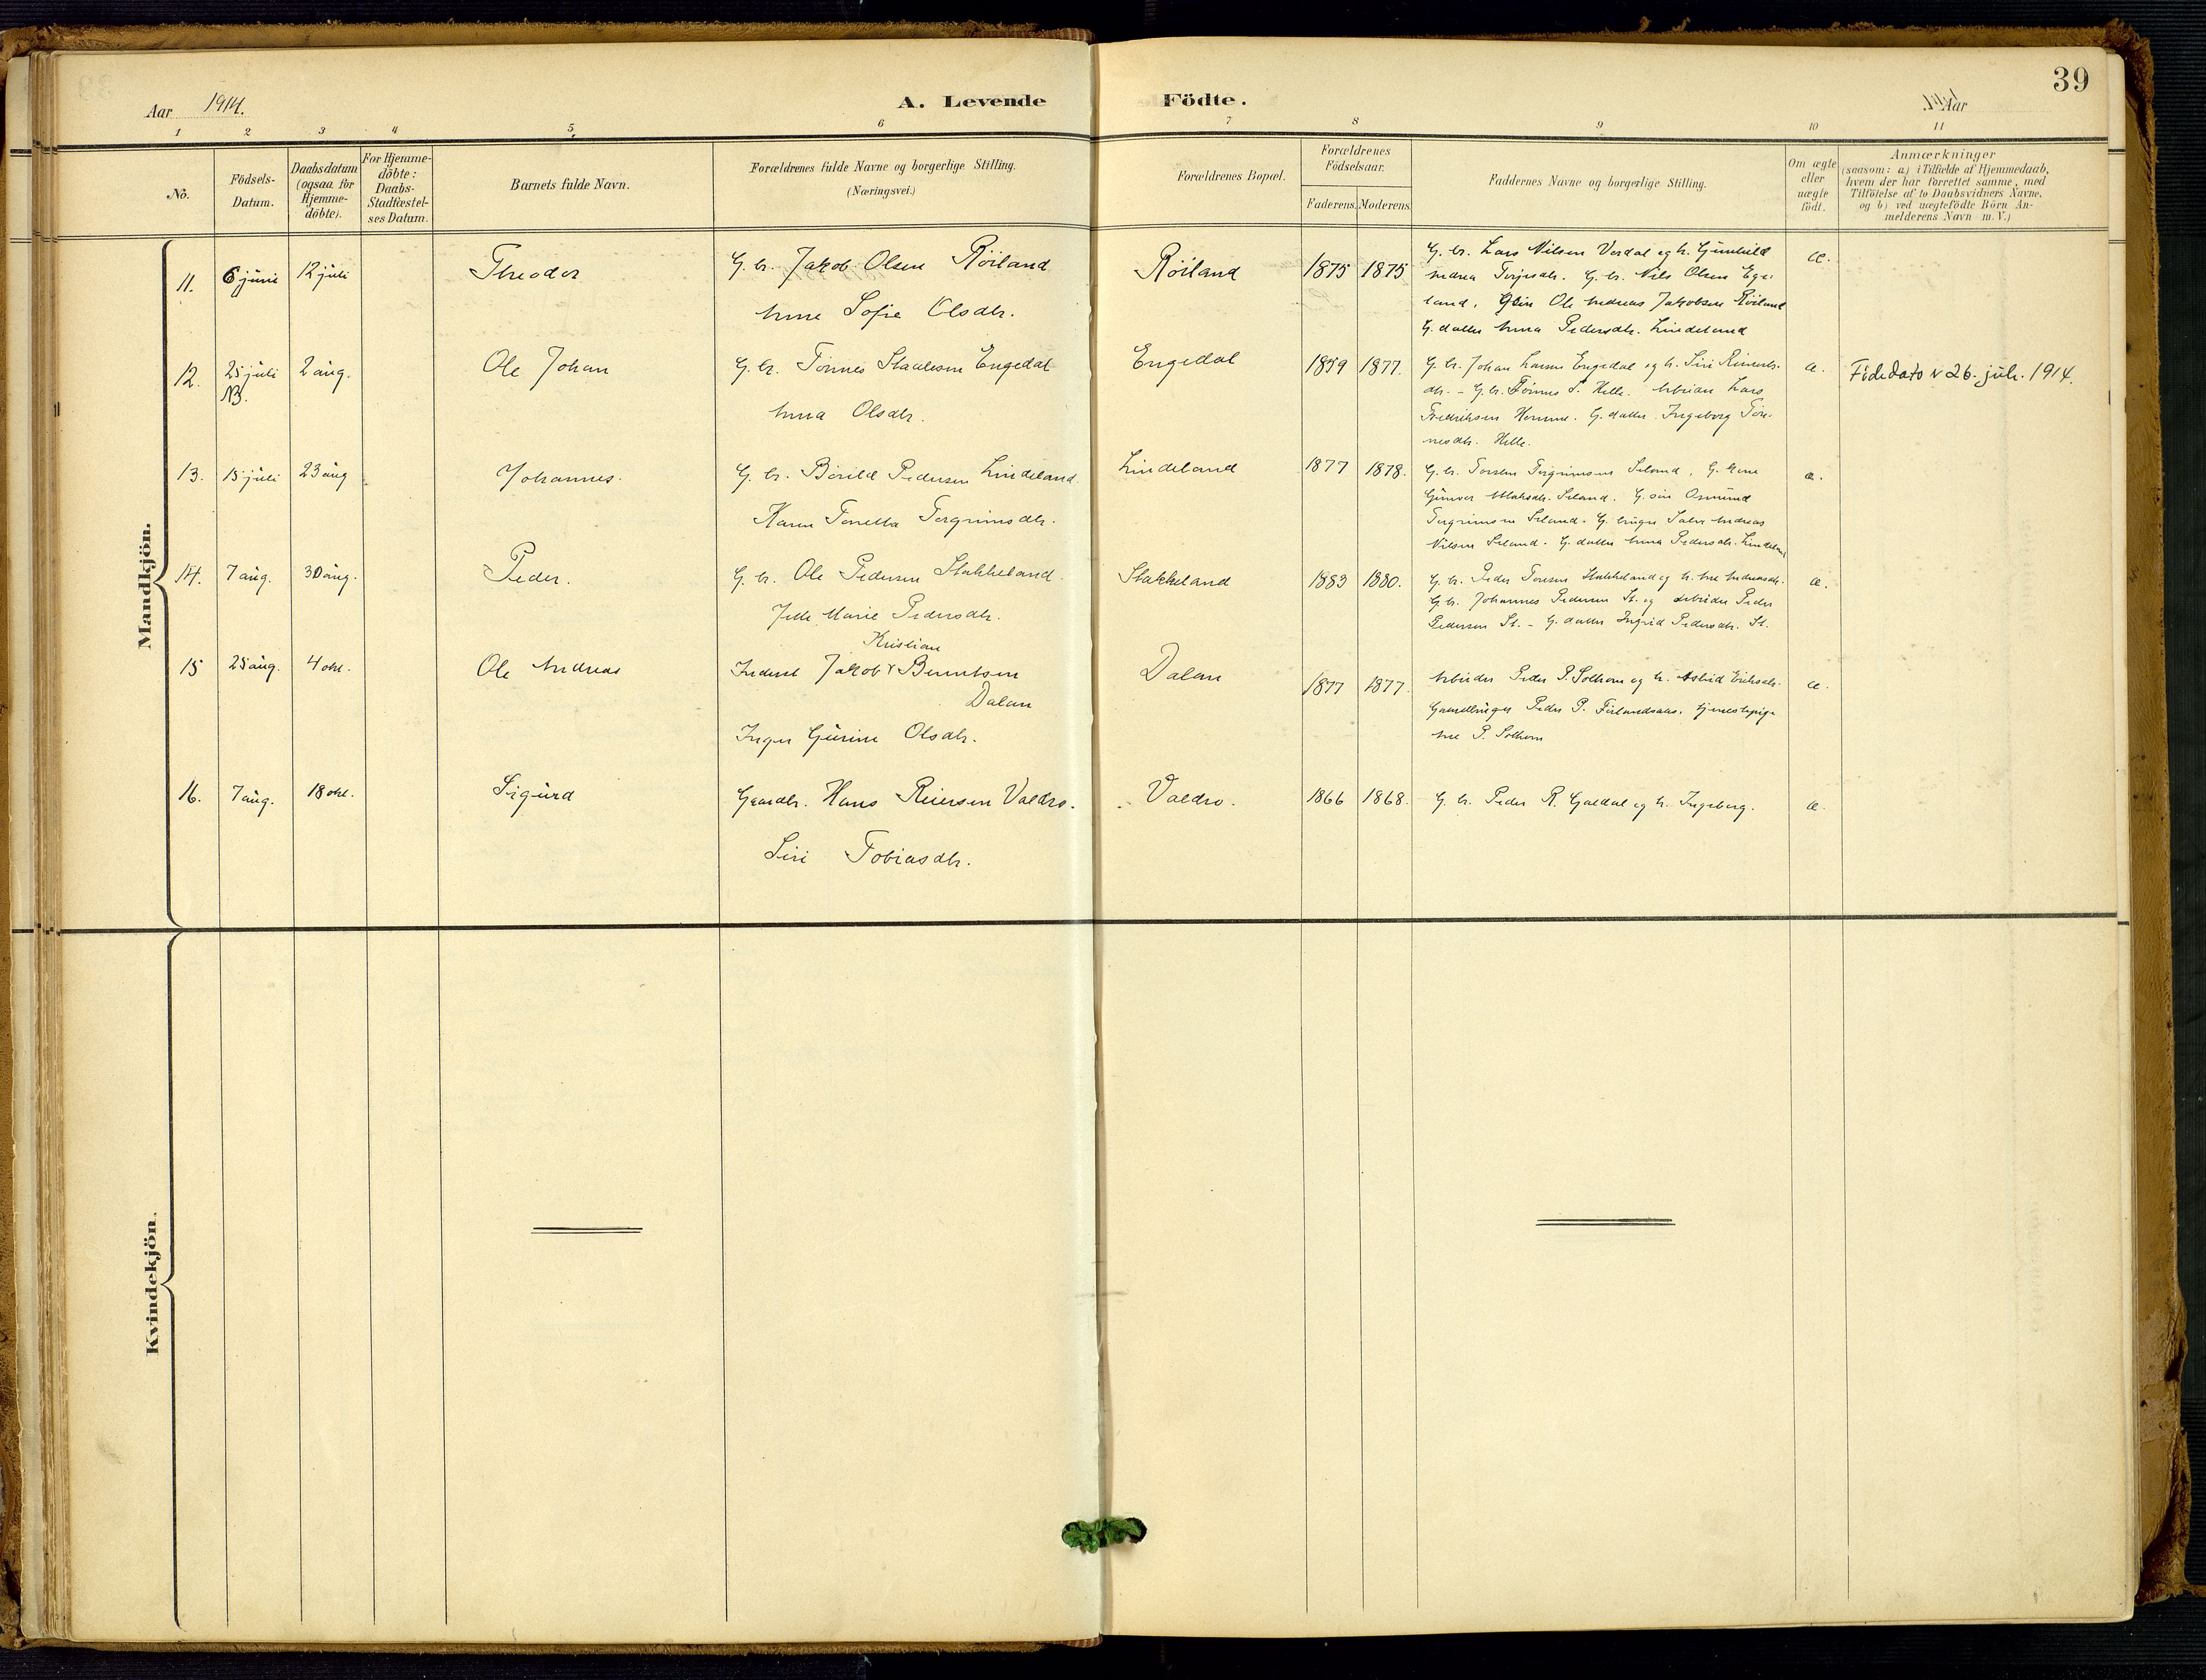 39
Aar 1914.
A. Levende Födte.
Aar 1914.
1 2 3 4 5 6 7 8 9 10 11
No.
Födsels-Datum.
Daabsdatum (ogsaa for Hjemme-döbte).
For Hjemme-döbte: Daabs-Stadfæstel-ses Datum.
Barnets fulde Navn.
Forældrenes fulde Navne og borgerlige Stilling.
(Næringsvei.)
Forældrenes Bopæl.
Forældrenes Födselsaar.
Faderens. Moderens.
Faddernes Navne og borgerlige Stilling.
Om ægte eller uægte födt.
Anmærkninger
(saasom: a) i Tilfælde af Hjemmedaab,
hvem der har forrettet samme, med
Tilföielse af to Daabsvidners Navne.
og b) ved uægtefödte Börn An-
melderens Navn m. V.)
Mandkjön.
11. 6 juni 12 juli Theodor G. br. Jakob Olsen Röiland Röiland 1875 1875 æ.
Anne Sofie Olsdtr.
G. br. Lars Nilsen Verdal og h. Gunhild
Andrea Terjesdtr. G. br. Nils Olsen Ege-
land. Gsön Ole Andreas Jakobsen Röiland
G. datter Anna Pedersdtr. Lindeland
12. 25 juli 2 aug. Ole Johan G. br. Tönnes Staalesen Engedal Engedal 1859 1877. æ. Födedato 26. juli. 1914.
NB.
Anna Olsdtr.
G. br. Johan Larsen Engedal og h. Siri Reierts-
dtr. - G. br. Tönnes S. Helle. Lars
Fredriksen Homme. G. datter Ingeborg Tön-
nesdtr. Helle.
13. 15 juli 23 aug Johannes. G. br. Börild Pedersen Lindeland Lindeland 1877 1878. æ.
Karen Tonette Tergrimsdtr.
G. br. Torsten Tergrimsen Seland. G. kone
Gunvor Seland. G. sön Osmund
Tergrimsen Seland. G. bruger Andreas
Nilsen Seland. G. datter Anna Pedersdtr. Lindeland
14. 7 aug. 30 aug. Peder. G. br. Ole Pedersen Stakkeland. Stakkeland 1883 1880. æ.
Marie Pedersdtr.
G. br. Peder Stakkeland og h. Ane Andreasdtr.
G. br. Johannes Pedersen St. og arbeider Peder
Pedersen St. - G. datter Ingrid Pedersdtr. St.
15 25 aug. 4 okt. Ole Andreas Inderst Jakob Kristian Berntsen Dalen 1877 1877. æ.
Dalen
Inger Gurine Olsdtr.
Arbeider Peder P. Solhom og h. Astrid Eriksdtr.
Gaardbruger Peder P. tjenestepige
Ane P. Solhom
16. 7 aug. 18 okt. Sigurd Gaardbr. Hans Reiersen Valdro. Valdro. 1866 1868. G. br. Peder R. Galdal og h. Ingeborg. æ.
Siri Tobiasdtr.
Kvindekjön.